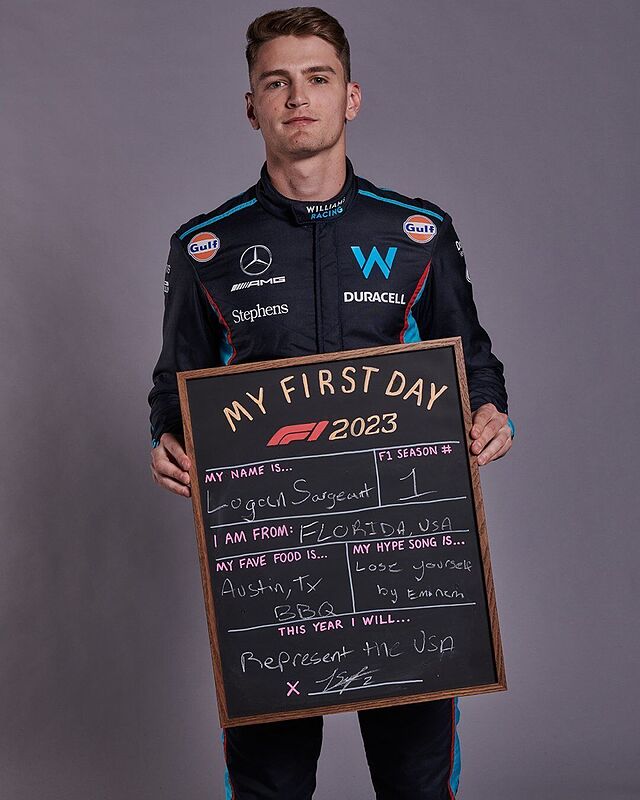 WILLIAMS
RACING
Gulf
Gulf
AMG
W
Stephens
DURACELL
MY FIRST DAY
F1 2023
MY NAME IS...
Logan Sargeant
F1 SEASON #
1
I AM FROM: FLORIDA, USA
MY FAVE FOOD IS...
Austin, Tx
BBQ
MY HYPE SONG IS...
Lose yourself
by Eminem
THIS YEAR I WILL...
Represent the USA
X